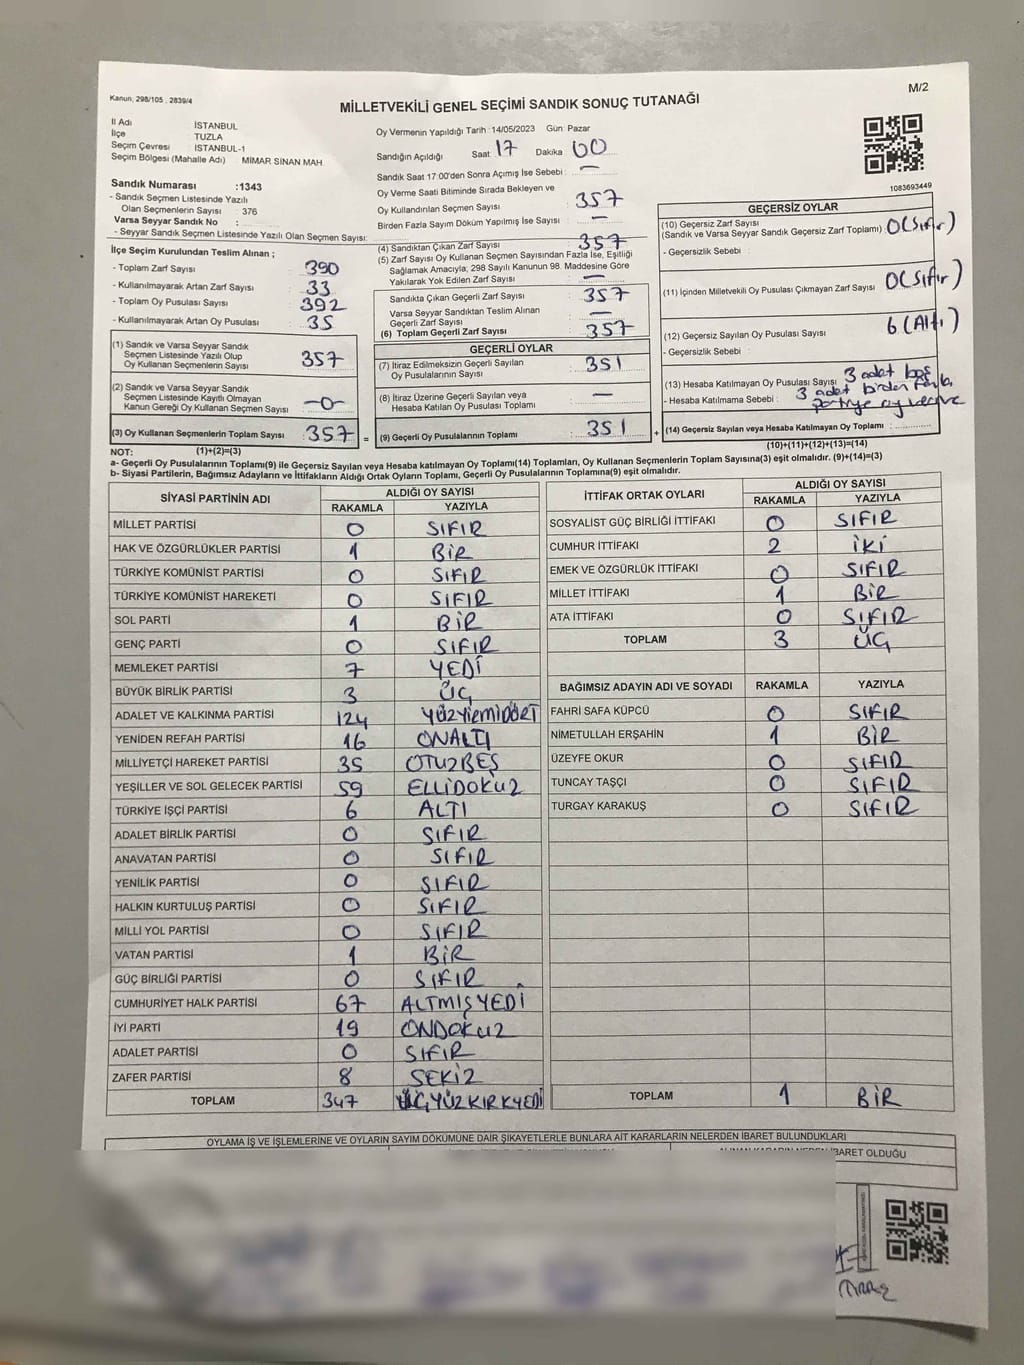 M/2
Kanun, 298/105 , 2839/4
MİLLETVEKİLİ GENEL SEÇİMİ SANDIK SONUÇ TUTANAĞI
İl Adı İSTANBUL
İlçe TUZLA
Seçim Çevresi İSTANBUL-1
Seçim Bölgesi (Mahalle Adı) MİMAR SİNAN MAH.
Sandık Numarası :1343
- Sandık Seçmen Listesinde Yazılı
Olan Seçmenlerin Sayısı 376
Varsa Seyyar Sandık No :
- Seyyar Sandık Seçmen Listesinde Yazılı Olan Seçmen Sayısı:
Oy Vermenin Yapıldığı Tarih :14/05/2023 Gün: Pazar
Sandığın Açıldığı Saat 17 Dakika 00
Sandık Saat 17:00'den Sonra Açımış İse Sebebi : —
Oy Verme Saati Bitiminde Sırada Bekleyen ve
Oy Kullandırılan Seçmen Sayısı : 357
Birden Fazla Sayım Döküm Yapılmış İse Sayısı : —
1083693449
İlçe Seçim Kurulundan Teslim Alınan ;
- Toplam Zarf Sayısı : 390
- Kullanılmayarak Artan Zarf Sayısı : 33
- Toplam Oy Pusulası Sayısı : 392
- Kullanılmayarak Artan Oy Pusulası : 35
(1) Sandık ve Varsa Seyyar Sandık
Seçmen Listesinde Yazılı Olup
Oy Kullanan Seçmenlerin Sayısı : 357
(2) Sandık ve Varsa Seyyar Sandık
Seçmen Listesinde Kayıtlı Olmayan
Kanun Gereği Oy Kullanan Seçmen Sayısı : -0-
(3) Oy Kullanan Seçmenlerin Toplam Sayısı : 357 =
(4) Sandıktan Çıkan Zarf Sayısı : 357
(5) Zarf Sayısı Oy Kullanan Seçmen Sayısından Fazla İse, Eşitliği
Sağlamak Amacıyla, 298 Sayılı Kanunun 98. Maddesine Göre
Yakılarak Yok Edilen Zarf Sayısı : —
Sandıkta Çıkan Geçerli Zarf Sayısı : 357
Varsa Seyyar Sandıktan Teslim Alınan
Geçerli Zarf Sayısı : —
(6) Toplam Geçerli Zarf Sayısı : 357
GEÇERLİ OYLAR
(7) İtiraz Edilmeksizin Geçerli Sayılan
Oy Pusulalarının Sayısı : 351
(8) İtiraz Üzerine Geçerli Sayılan veya
Hesaba Katılan Oy Pusulası Toplamı : —
(9) Geçerli Oy Pusulalarının Toplamı : 351 +
GEÇERSİZ OYLAR
(10) Geçersiz Zarf Sayısı
(Sandık ve Varsa Seyyar Sandık Geçersiz Zarf Toplamı) : 0 (Sıfır)
- Geçersizlik Sebebi :
(11) İçinden Milletvekili Oy Pusulası Çıkmayan Zarf Sayısı : 0 (Sıfır)
(12) Geçersiz Sayılan Oy Pusulası Sayısı : 6 (Altı)
- Geçersizlik Sebebi :
(13) Hesaba Katılmayan Oy Pusulası Sayısı : 3 adet boş
- Hesaba Katılmama Sebebi : 3 adet birden fazla
partiye oy
(14) Geçersiz Sayılan veya Hesaba Katılmayan Oy Toplamı :
NOT: (1)+(2)=(3) (10)+(11)+(12)+(13)=(14)
a- Geçerli Oy Pusulaları Toplamı(9) ile Geçersiz Sayılan veya Hesaba katılmayan Oy Toplamı(14) Toplamları, Oy Kullanan Seçmenlerin Toplam Sayısına(3) eşit olmalıdır. (9)+(14)=(3)
b- Siyasi Partilerin, Bağımsız Adayların ve İttifakların Aldığı Ortak Oyların Toplamı, Geçerli Oy Pusulalarının Toplamına(9) eşit olmalıdır.
SİYASİ PARTİNİN ADI ALDIĞI OY SAYISI
RAKAMLA YAZIYLA
MİLLET PARTİSİ 0 SIFIR
HAK VE ÖZGÜRLÜKLER PARTİSİ 1 BİR
TÜRKİYE KOMÜNİST PARTİSİ 0 SIFIR
TÜRKİYE KOMÜNİST HAREKETİ 0 SIFIR
SOL PARTİ 1 BİR
GENÇ PARTİ 0 SIFIR
MEMLEKET PARTİSİ 7 YEDİ
BÜYÜK BİRLİK PARTİSİ 3 ÜÇ
ADALET VE KALKINMA PARTİSİ 124 YÜZYİRMİDÖRT
YENİDEN REFAH PARTİSİ 16 ONALTI
MİLLİYETÇİ HAREKET PARTİSİ 35 OTUZBEŞ
YEŞİLLER VE SOL GELECEK PARTİSİ 59 ELLİDOKUZ
TÜRKİYE İŞÇİ PARTİSİ 6 ALTI
ADALET BİRLİK PARTİSİ 0 SIFIR
ANAVATAN PARTİSİ 0 SIFIR
YENİLİK PARTİSİ 0 SIFIR
HALKIN KURTULUŞ PARTİSİ 0 SIFIR
MİLLİ YOL PARTİSİ 0 SIFIR
VATAN PARTİSİ 1 BİR
GÜÇ BİRLİĞİ PARTİSİ 0 SIFIR
CUMHURİYET HALK PARTİSİ 67 ALTMIŞYEDİ
İYİ PARTİ 19 ONDOKUZ
ADALET PARTİSİ 0 SIFIR
ZAFER PARTİSİ 8 SEKİZ
TOPLAM 347 ÜÇYÜZKIRKYEDİ
İTTİFAK ORTAK OYLARI ALDIĞI OY SAYISI
RAKAMLA YAZIYLA
SOSYALİST GÜÇ BİRLİĞİ İTTİFAKI 0 SIFIR
CUMHUR İTTİFAKI 2 İKİ
EMEK VE ÖZGÜRLÜK İTTİFAKI 0 SIFIR
MİLLET İTTİFAKI 1 BİR
ATA İTTİFAKI 0 SIFIR
TOPLAM 3 ÜÇ
BAĞIMSIZ ADAYIN ADI VE SOYADI RAKAMLA YAZIYLA
FAHRİ SAFA KÜPCÜ 0 SIFIR
NİMETULLAH ERŞAHİN 1 BİR
ÜZEYFE OKUR 0 SIFIR
TUNCAY TAŞÇI 0 SIFIR
TURGAY KARAKUŞ 0 SIFIR
TOPLAM 1 BİR
OYLAMA İŞ VE İŞLEMLERİNE VE OYLARIN SAYIM DÖKÜMÜNE DAİR ŞİKAYETLERLE BUNLARA AİT KARARLARIN NELERDEN İBARET BULUNDUKLARI
İBARET OLDUĞU